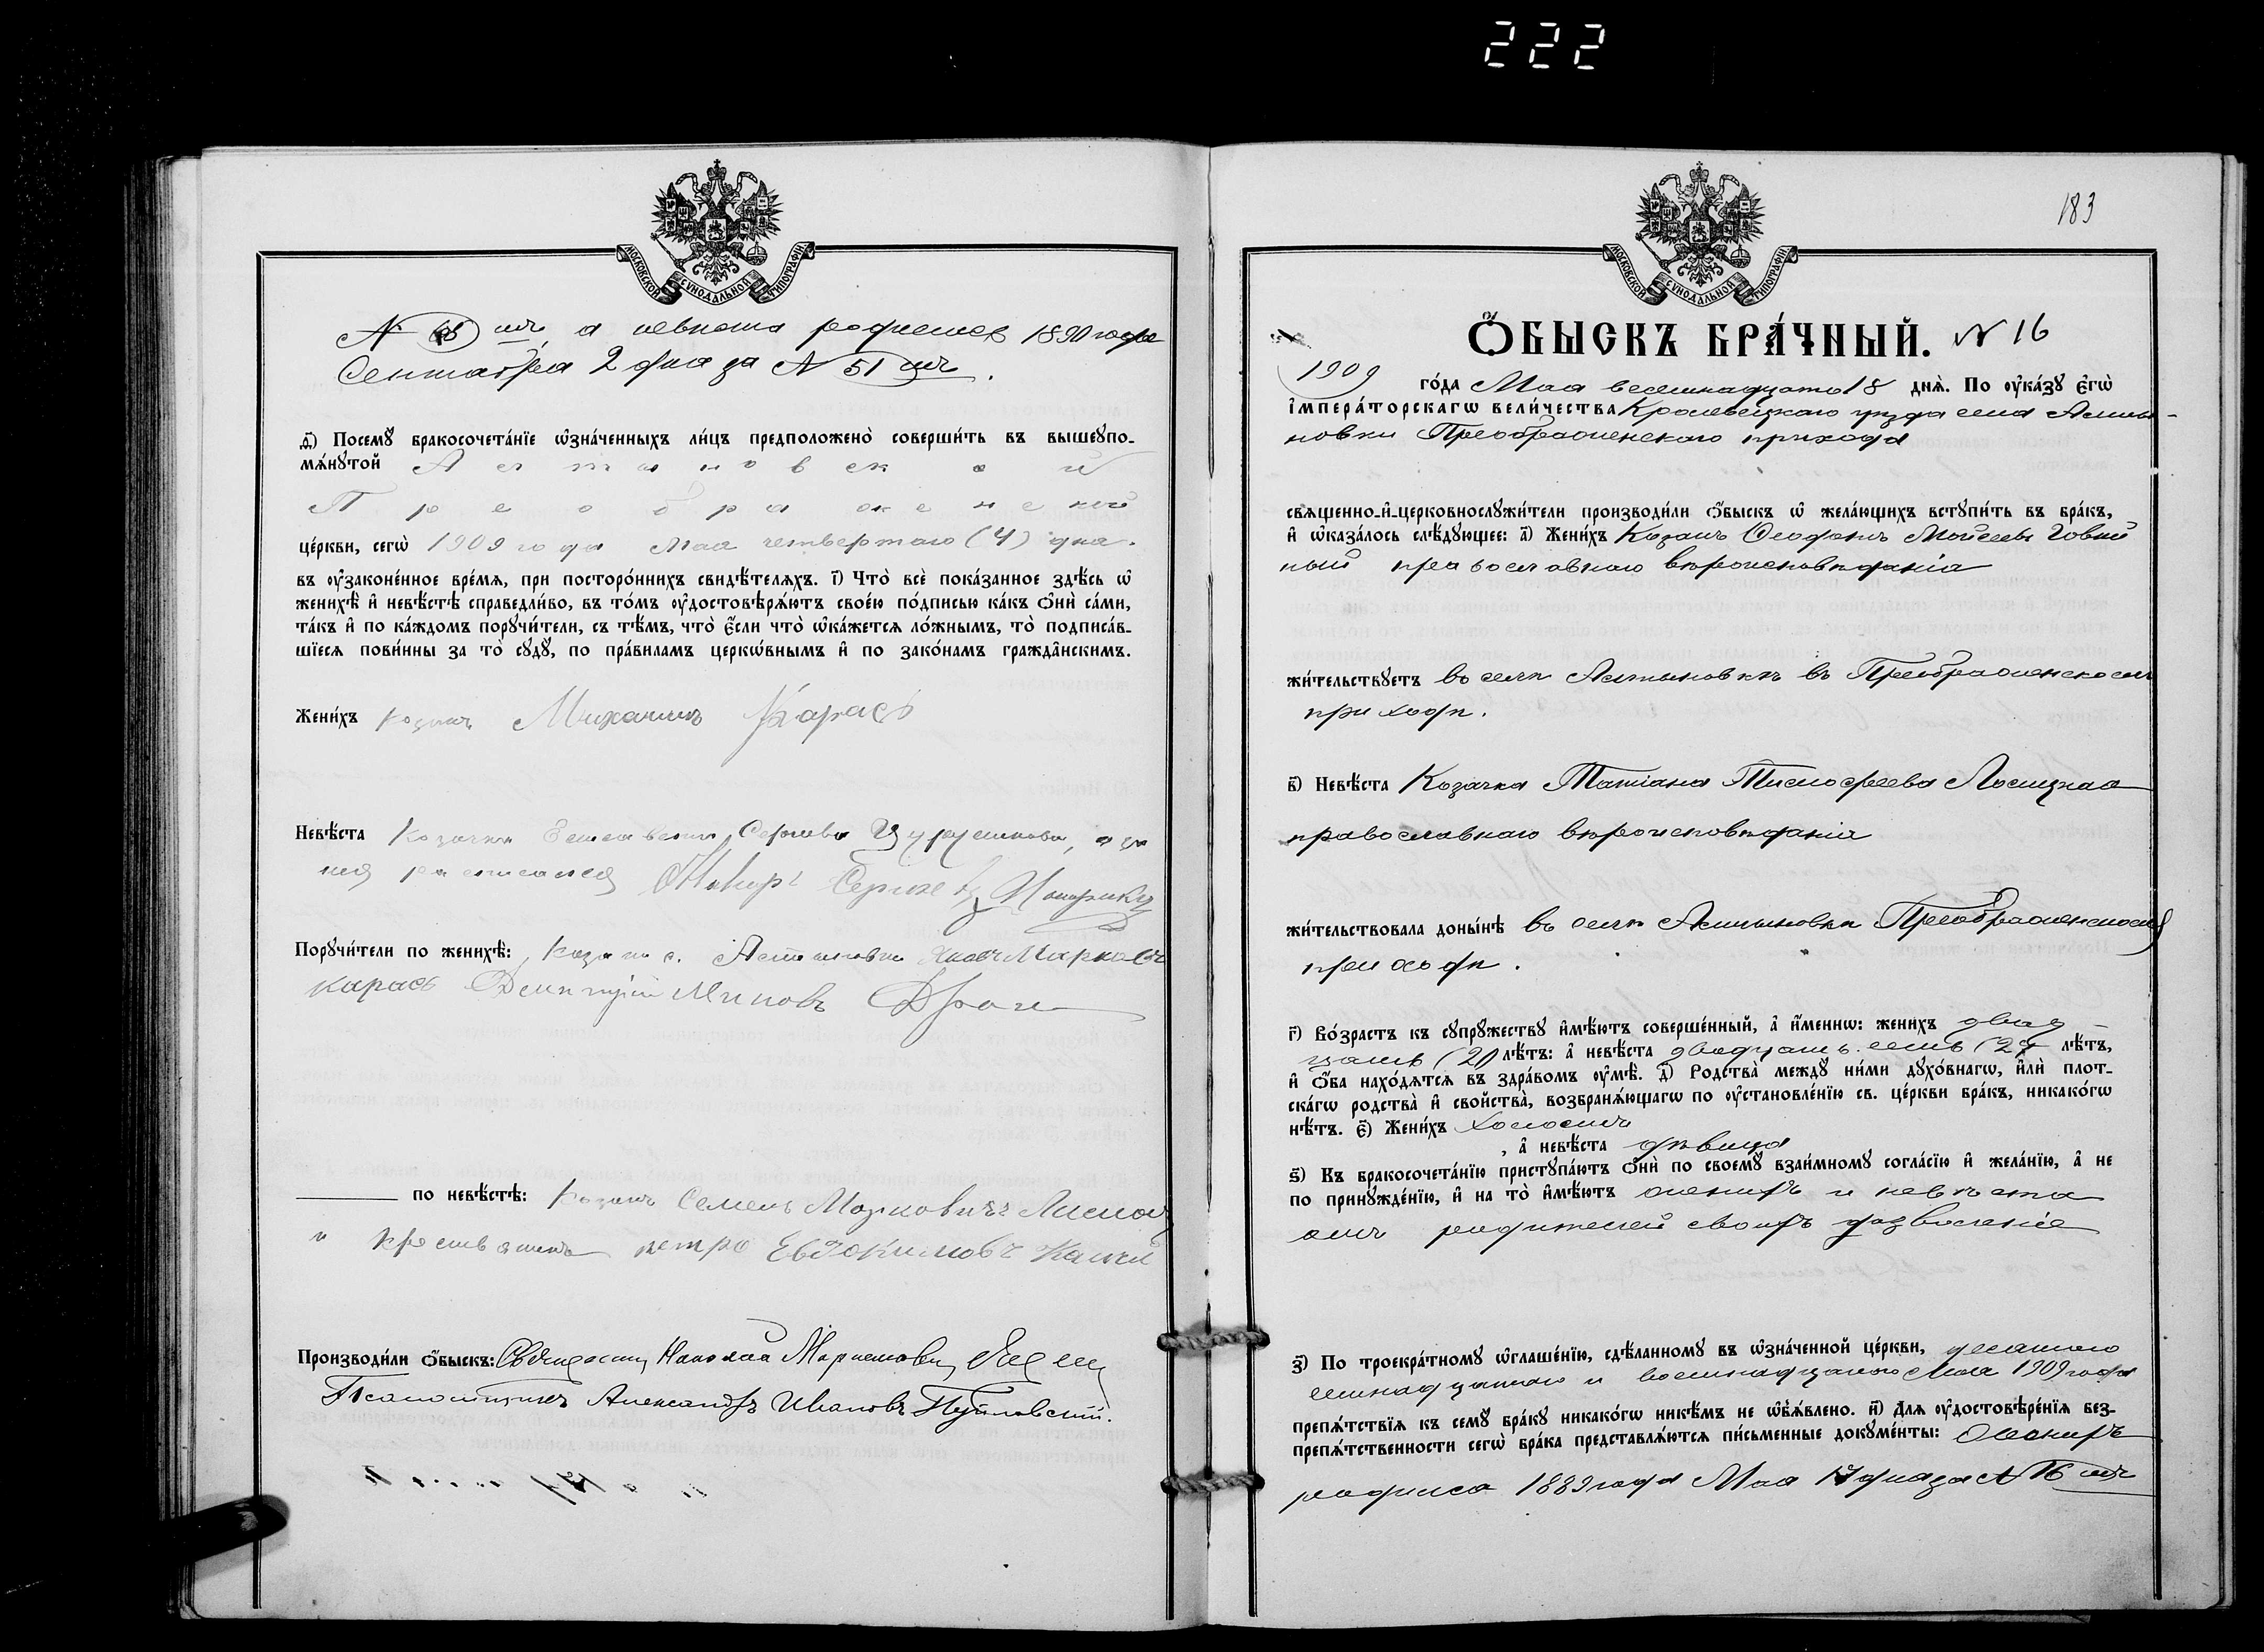 222
МОСКОВСКОЙ СѴНОДАЛЬНОЙ ТИПОГРАФІИ
а невѣста родилась 1890 года
Сентября 2 дня за № 51 мъ.
д҃і) Посемꙋ̀ бракосочета́нїе ѡ҆зна́ченныхъ ли́цъ предположено̀ соверши́ть въ вышеупо-
мѧ́нꙋтой Алтыновской
Преображенской
це́ркви, сегѡ̀ 1909 года Мая четвертаго (4) дня.
въ ᲂу҆зако́ненное вре́мѧ, при посторо́ннихъ свидѣ́телѧхъ. і҃) Что̀ всѐ пока́занное здѣ́сь ѡ҆
женихѣ̀ и҆ невѣ́стѣ справедли́во, въ то́мъ ᲂу҆достовѣрѧ́ютъ свое́ю по́дписью ка́къ ѻ҆нѝ са́ми,
та́къ и҆ по ка́ждомъ порꙋчи́тели, съ тѣ́мъ, что̀ є҆́сли что̀ ѡ҆ка́жетсѧ ло́жнымъ, то̀ подписа́в-
шїесѧ пови́нны за то̀ сꙋдꙋ̀, по пра́виламъ церко́внымъ и҆ по зако́намъ гражда̑нскимъ.
Жени́хъ Козакъ Михаилъ Карась
Невѣ́ста Козачка
Порꙋчи́тели по женихѣ̀: Козаки с. Алтыновки
Карась
по невѣ́стѣ: Козакъ Семенъ
и крестьянинъ петро Евдокимовъ
Производи́ли ѻ҆́быскъ: Священникъ Николай
Псаломщикъ Александръ Ивановъ
183
МОСКОВСКОЙ СѴНОДАЛЬНОЙ ТИПОГРАФІИ
Ѻ҆́БЫСКЪ БРА́ЧНЫЙ. № 16
1909 го́да Мая восемнадцатаго 18 днѧ̀. По ᲂу҆ка́зꙋ є҆гѡ̀
і҆мпера́торскагѡ вели́чества Кролевецкаго уѣзда села Алты-
новки Преображенскаго прихода
свѧщенно-и҆-церковнослꙋжи́тели производи́ли ѻ҆́быскъ ѡ҆ жела́ющихъ встꙋпи́ть въ бра́къ,
и҆ ѡ҆каза́лось слѣ́дꙋющее: а҃) Жени́хъ Козакъ Феофанъ Моисеевъ
православнаго вѣроисповѣданія
жи́тельствꙋетъ въ селѣ Алтыновкѣ въ Преображенскомъ
приходѣ.
в҃) Невѣ́ста Козачка Татіана Тимофеева
православнаго вѣроисповѣданія
жи́тельствовала доны́нѣ въ селѣ Алтыновкѣ Преображенскомъ
приходѣ.
г҃) Во́зрастъ къ сꙋпрꙋжествꙋ и҆мѣ́ютъ соверше́нный, а҆ и҆́меннѡ: жени́хъ двад-
цать (20) лѣ́тъ: а҆ невѣ́ста двадцать лѣ́тъ,
и҆ ѻ҆́ба нахо́дѧтсѧ въ здра́вомъ ᲂу҆мѣ̀. д҃) Родства̀ междꙋ̀ ни́ми дꙋхо́внагѡ, и҆лѝ плот-
ска́гѡ родства̀ и҆ свойства̀, возбранѧ́ющагѡ по ᲂу҆становле́нїю св. це́ркви бра́къ, никако́гѡ
нѣ́тъ. є҃) Жени́хъ холостъ
, а҆ невѣ́ста дѣвица
ѕ҃) Къ бракосочета́нїю пристꙋпа́ютъ ѻ҆нѝ по своемꙋ̀ взаи́мномꙋ согла́сїю и҆ жела́нїю, а҆ не
по принꙋжде́нїю, и҆ на то̀ и҆мѣ́ютъ женихъ и невѣста
отъ родителей своихъ дозволеніе
з҃) По троекра́тномꙋ ѡ҆глаше́нїю, сдѣ́ланномꙋ въ ѡ҆зна́ченной це́ркви, десятаго
и восемнадцатаго Мая 1909 года
препѧ́тствїѧ къ семꙋ̀ бра́кꙋ никако́гѡ никѣ́мъ не ѡ҆б̾ѧ́влено. и҃) Длѧ ᲂу҆достовѣре́нїѧ без-
препѧ́тственности сегѡ̀ бра́ка представлѧ́ютсѧ пи́сьменные докꙋме́нты: Женихъ
родился 1889 года Мая дня за № 16 мъ